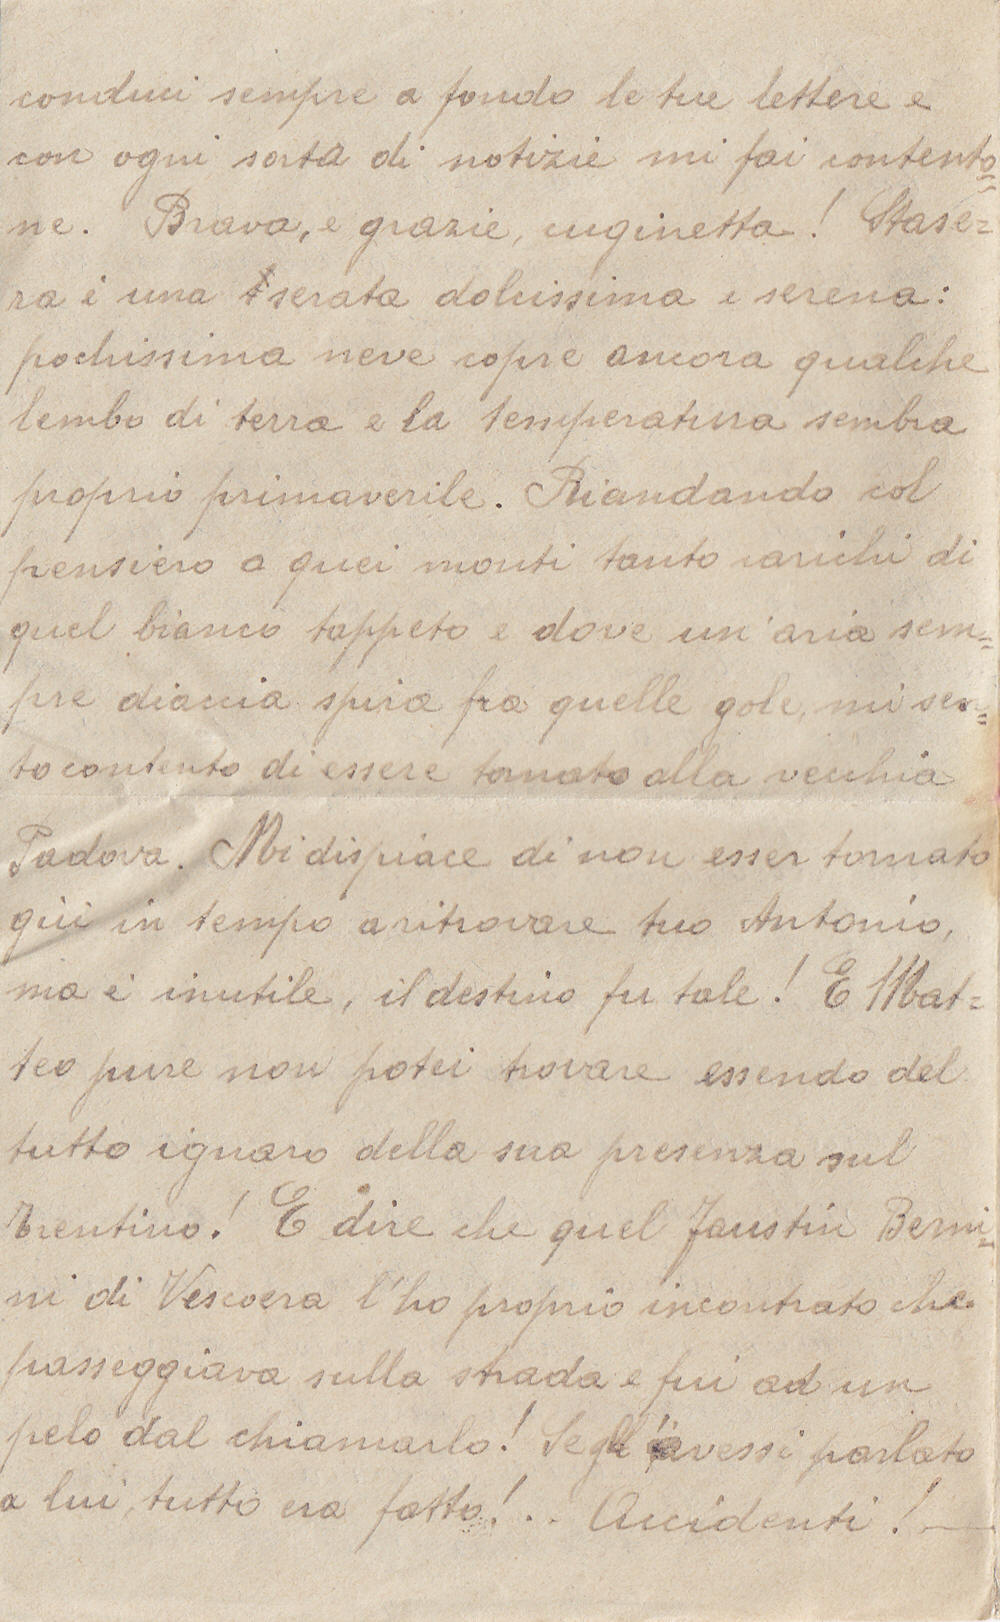 conduci sempre a fondo le tue lettere e
con ogni sorta di notizie mi fai contento=
ne. Brava, e grazie, cuginetta! Stase=
ra è una serata dolcissima e serena:
pochissima neve copre ancora qualche
lembo di terra e la temperatura sembra
proprio primaverile. Riandando col
pensiero a quei monti tanto carichi di
quel bianco tappeto e dove un'aria sem=
pre diaccia spira fra quelle gole, mi sen=
to contento di essere tornato alla vecchia
Padova. Mi dispiace di non esser tornato
qui in tempo a ritrovare tuo Antonio,
ma è inutile, il destino fu tale! E Mat=
teo pure non potei trovare essendo del
tutto ignaro della sua presenza sul
Trentino! E dire che quel Faustin Berni=
ni di Vescovera l'ho proprio incontrato che
passeggiava sulla strada e fui ad un
pelo dal chiamarlo! Se gli avessi parlato
a lui, tutto era fatto!.. Accidenti! —